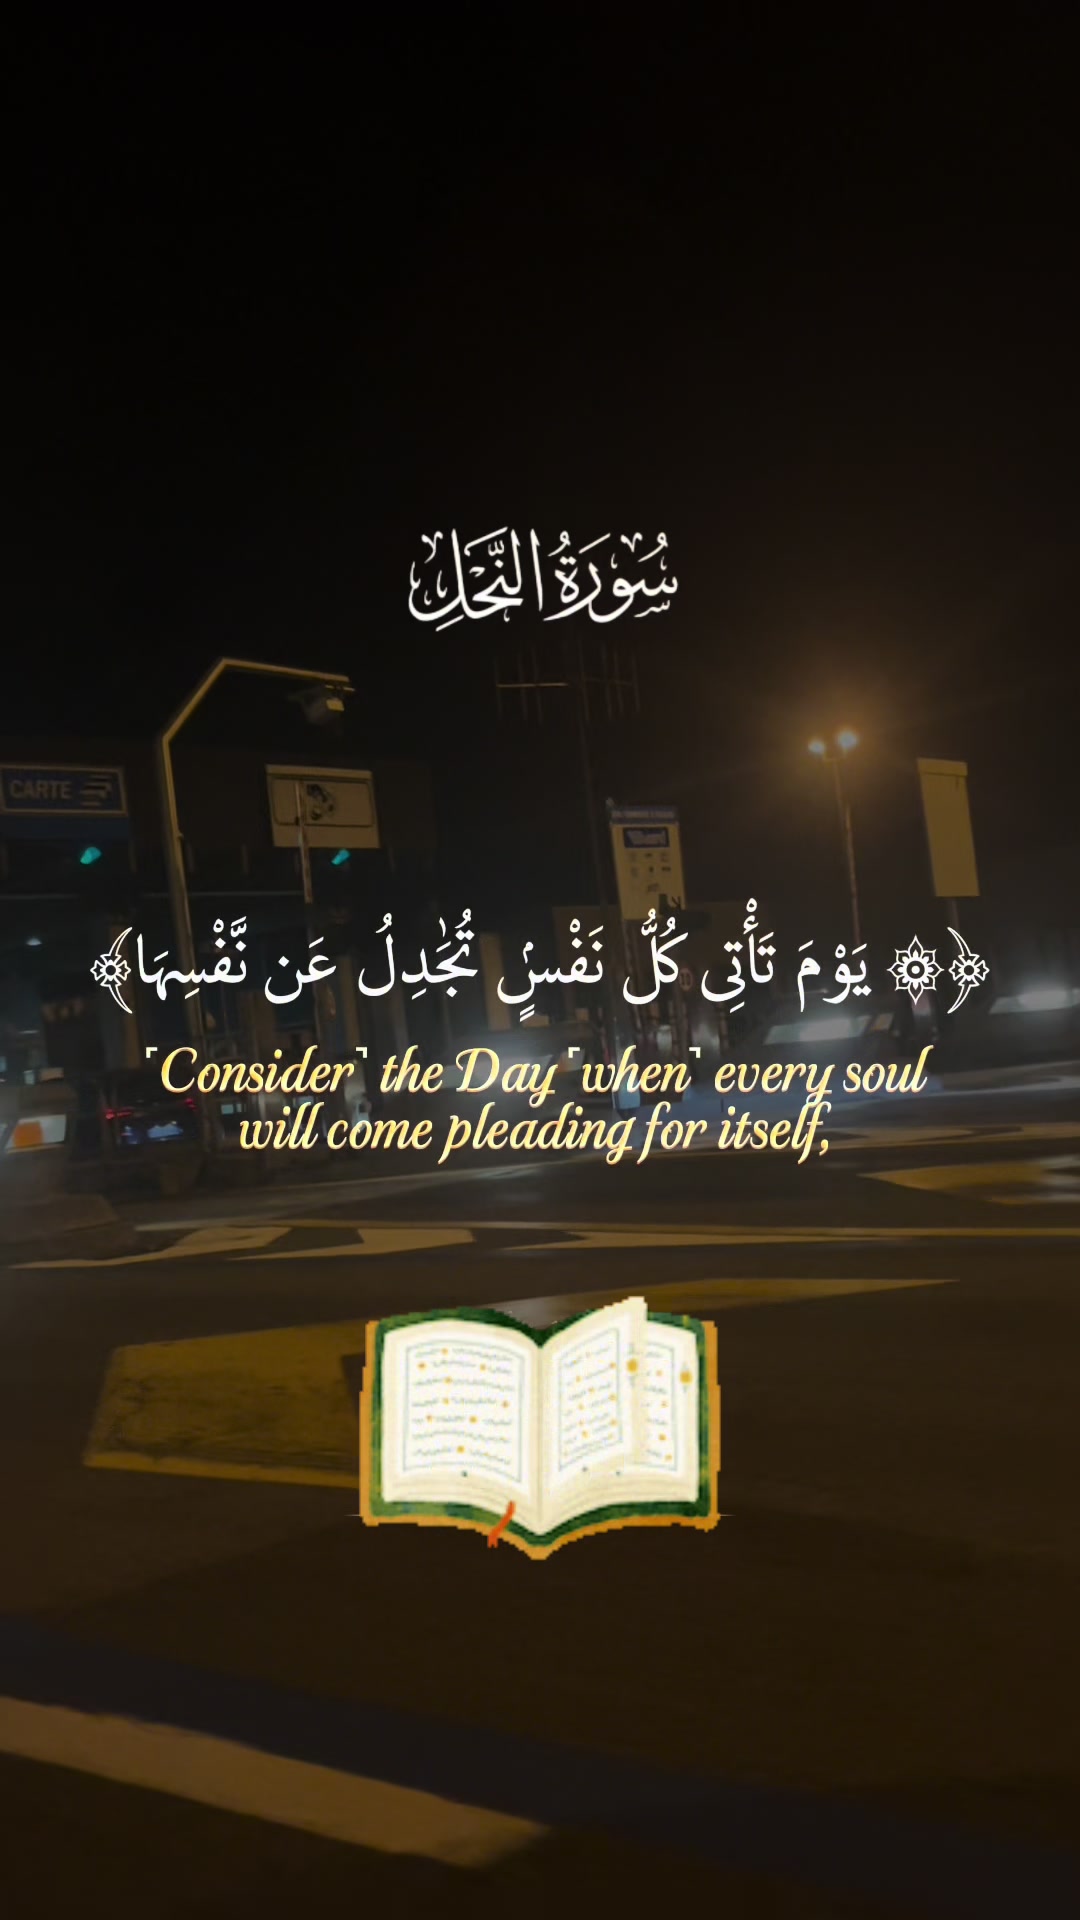 سُورَةُ النَّحْلِ
CARTE
﴿۞ يَوْمَ تَأْتِى كُلُّ نَفْسٍۢ تُجَـٰدِلُ عَن نَّفْسِهَا﴾
˹Consider˺ the Day ˹when˺ every soul
will come pleading for itself,